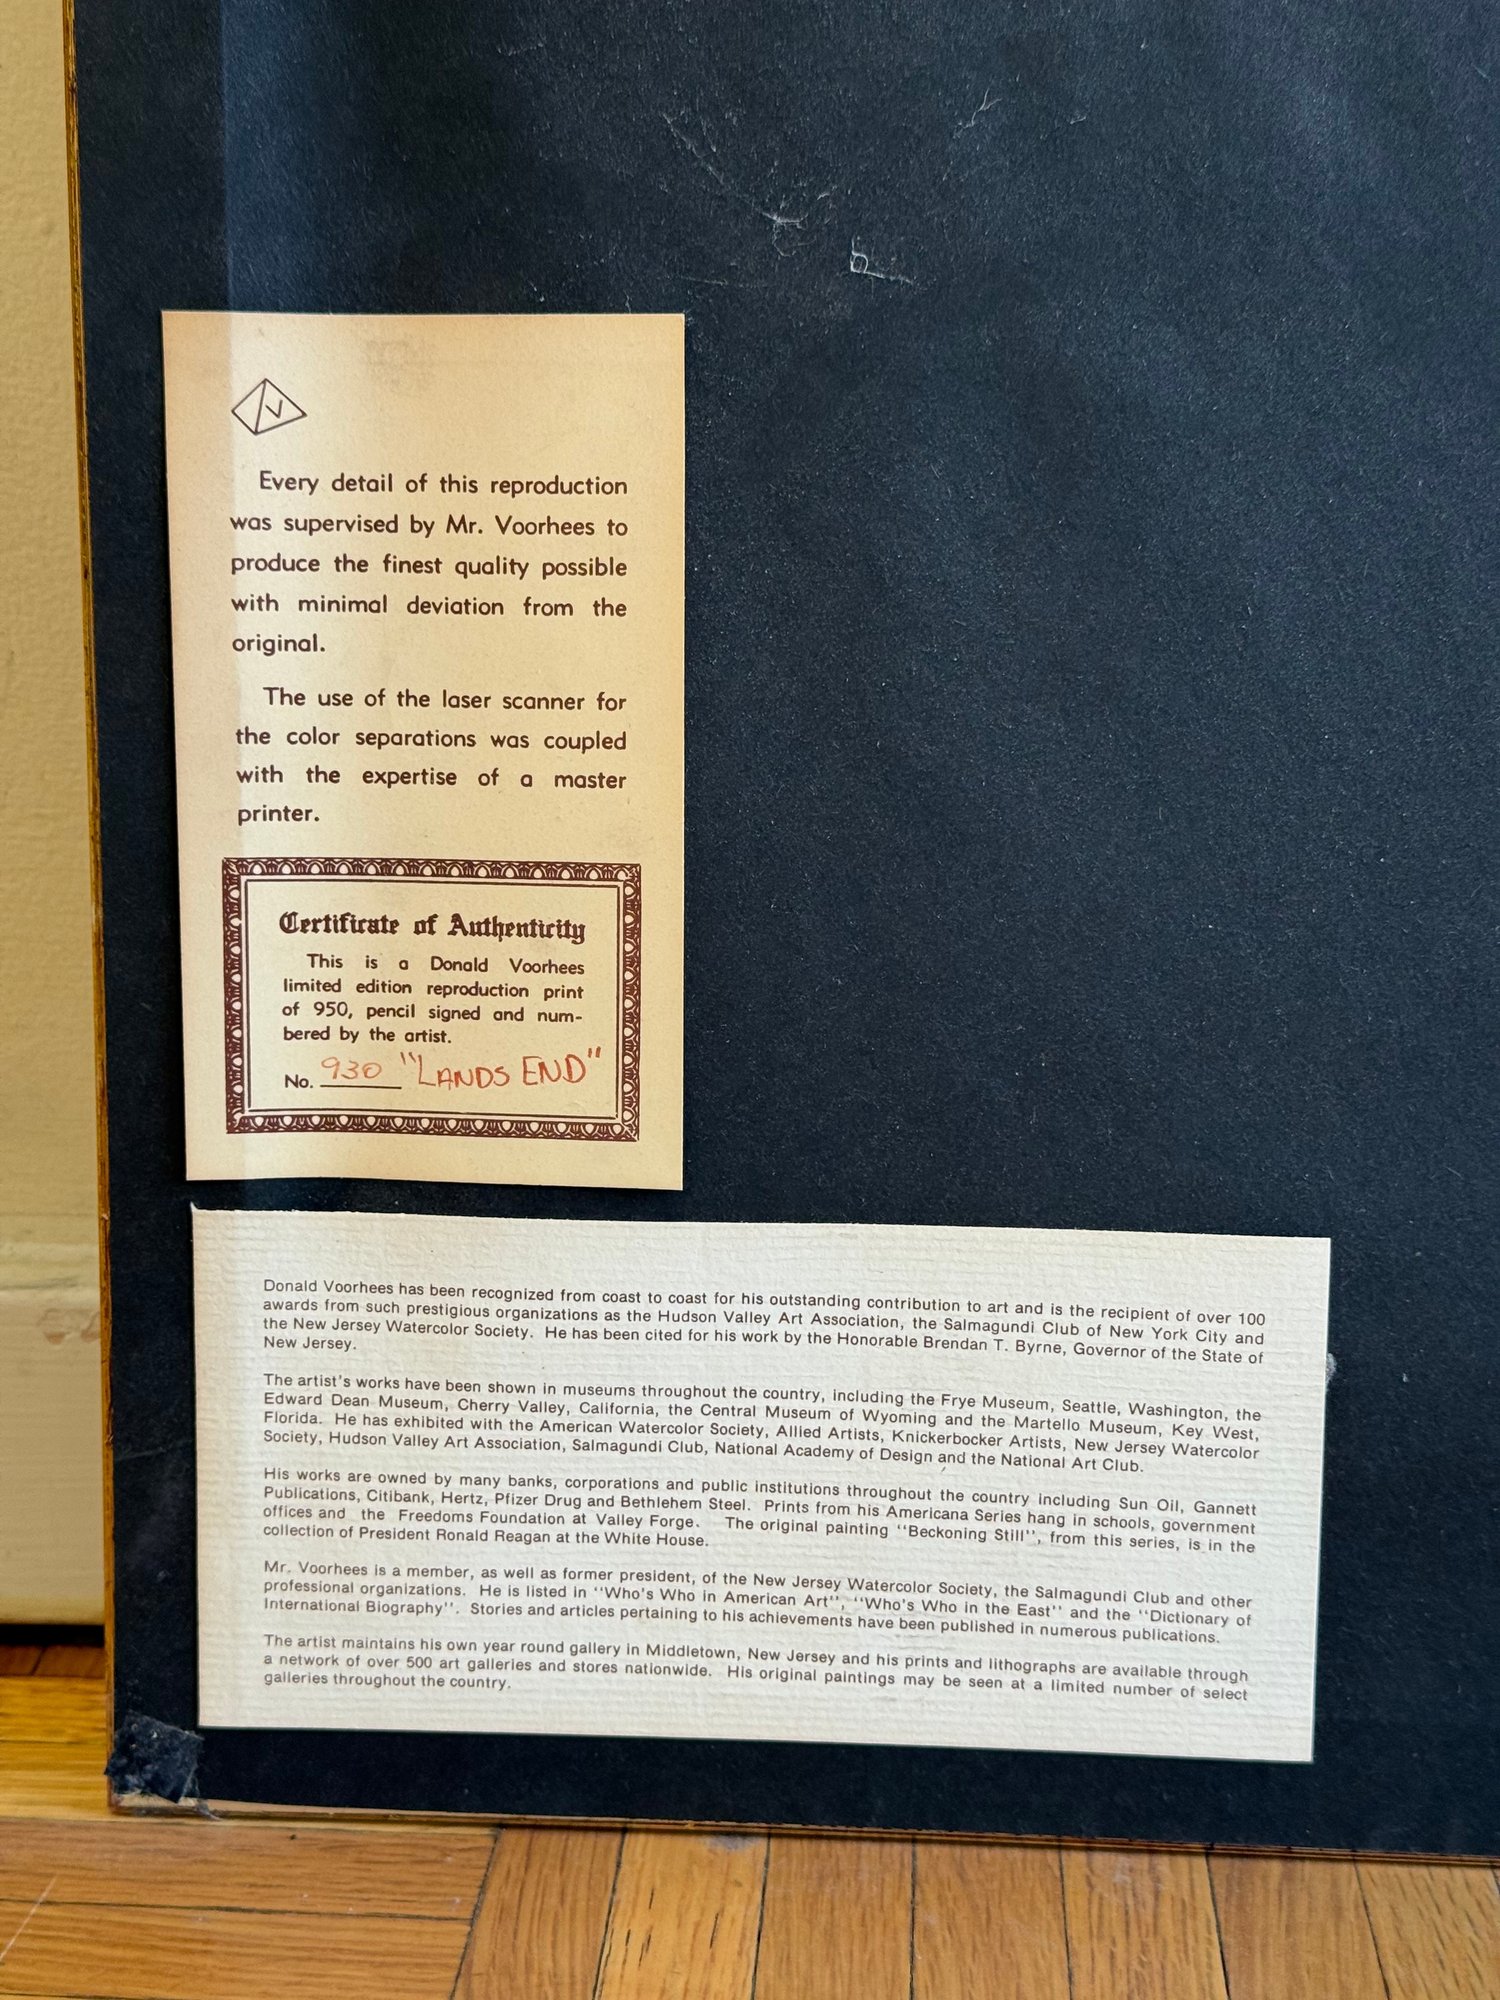 V
Every detail of this reproduction
was supervised by Mr. Voorhees to
produce the finest quality possible
with minimal deviation from the
original.
The use of the laser scanner for
the color separations was coupled
with the expertise of a master
printer.
Certificate of Authenticity
This is a Donald Voorhees
limited edition reproduction print
of 950, pencil signed and num-
bered by the artist.
No. 930 "LANDS END"
Donald Voorhees has been recognized from coast to coast for his outstanding contribution to art and is the recipient of over 100
awards from such prestigious organizations as the Hudson Valley Art Association, the Salmagundi Club of New York City and
the New Jersey Watercolor Society. He has been cited for his work by the Honorable Brendan T. Byrne, Governor of the State of
New Jersey.
The artist's works have been shown in museums throughout the country, including the Frye Museum, Seattle, Washington, the
Edward Dean Museum, Cherry Valley, California, the Central Museum of Wyoming and the Martello Museum, Key West,
Florida. He has exhibited with the American Watercolor Society, Allied Artists, Knickerbocker Artists, New Jersey Watercolor
Society, Hudson Valley Art Association, Salmagundi Club, National Academy of Design and the National Art Club.
His works are owned by many banks, corporations and public institutions throughout the country including Sun Oil, Gannett
Publications, Citibank, Hertz, Pfizer Drug and Bethlehem Steel. Prints from his Americana Series hang in schools, government
offices and the Freedoms Foundation at Valley Forge. The original painting "Beckoning Still", from this series, is in the
collection of President Ronald Reagan at the White House.
Mr. Voorhees is a member, as well as former president, of the New Jersey Watercolor Society, the Salmagundi Club and other
professional organizations. He is listed in "Who's Who in American Art", "Who's Who in the East" and the "Dictionary of
International Biography". Stories and articles pertaining to his achievements have been published in numerous publications.
The artist maintains his own year round gallery in Middletown, New Jersey and his prints and lithographs are available through
a network of over 500 art galleries and stores nationwide. His original paintings may be seen at a limited number of select
galleries throughout the country.